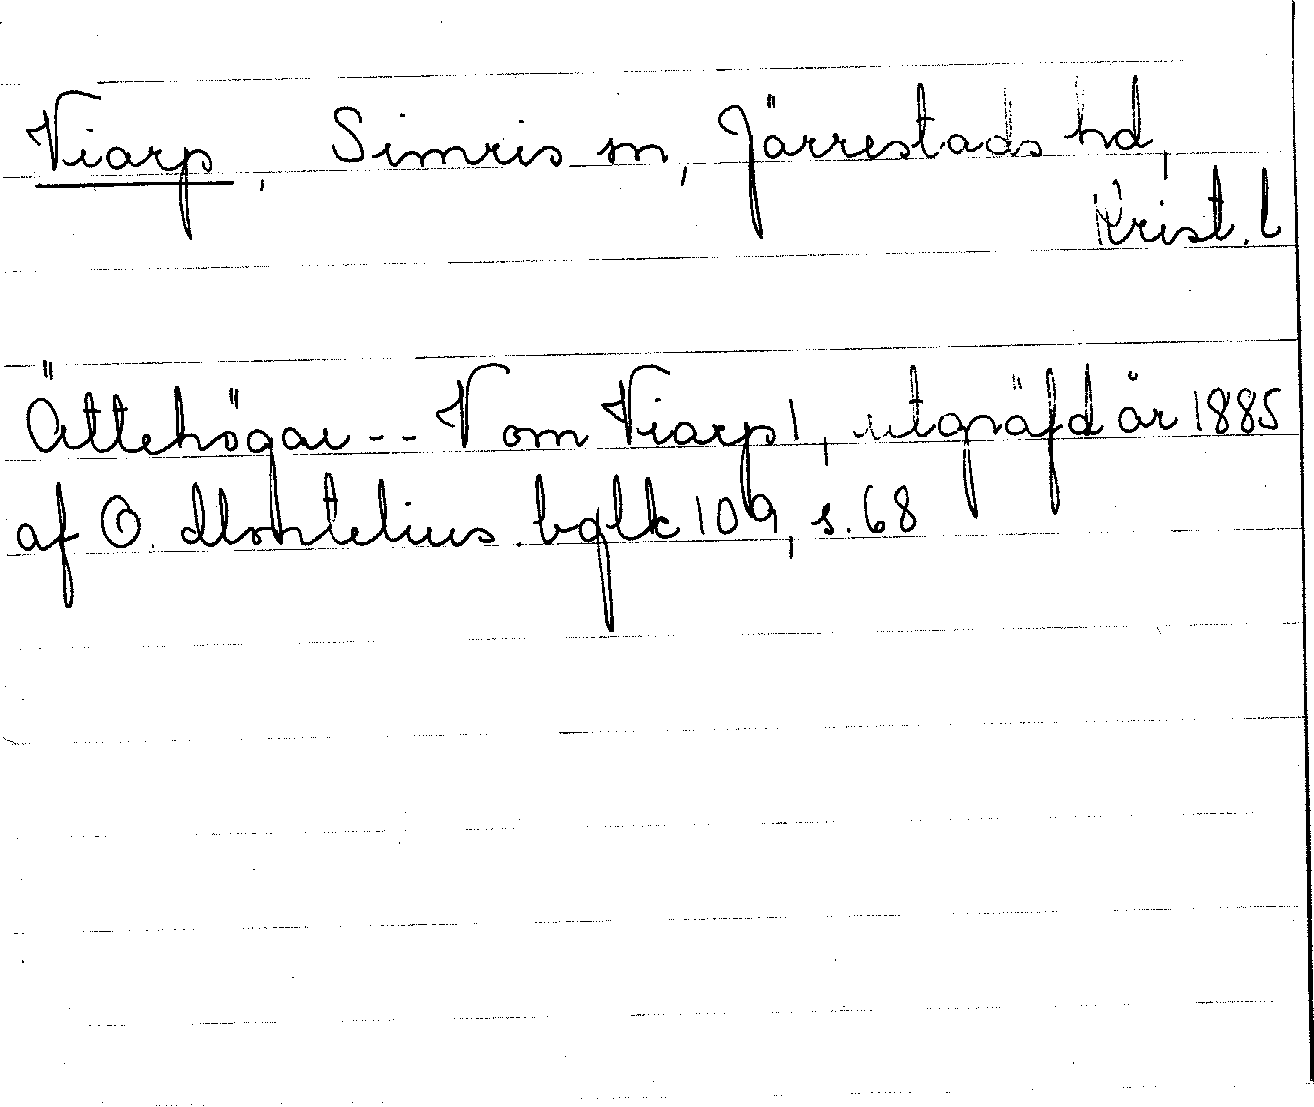 Viarp, Simris sn, Järrestads hd,
Krist. l
Ättehögar -- V om Viarp 1, utgräfd år 1885
af O. Montelius. bglk 109, s. 68